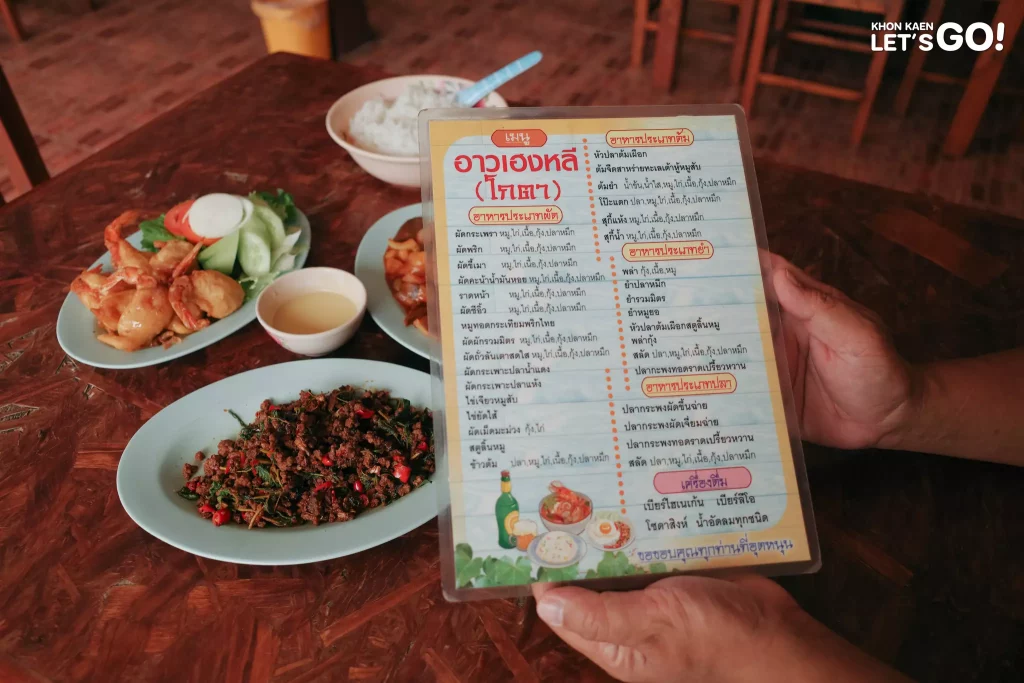 KHON KAEN
LET'S GO!
เมนู
อาวเฮงหลี
(โกตา)
อาหารประเภทผัด
ผัดกระเพรา หมู,ไก่,เนื้อ,กุ้ง,ปลาหมึก
ผัดพริก หมู,ไก่,เนื้อ,กุ้ง,ปลาหมึก
ผัดขี้เมา หมู,ไก่,เนื้อ,กุ้ง,ปลาหมึก
ผัดคะน้าน้ำมันหอย หมู,ไก่,เนื้อ,กุ้ง,ปลาหมึก
ราดหน้า หมู,ไก่,เนื้อ,กุ้ง,ปลาหมึก
ผัดซีอิ๊ว หมู,ไก่,เนื้อ,กุ้ง,ปลาหมึก
หมูทอดกระเทียมพริกไทย
ผัดผักรวมมิตร หมู,ไก่,เนื้อ,กุ้ง,ปลาหมึก
ผัดถั่วลันเตาสดใส หมู,ไก่,เนื้อ,กุ้ง,ปลาหมึก
ผัดกระเพาะปลาน้ำแดง
ผัดกระเพาะปลาแห้ง
ไข่เจียวหมูสับ
ไข่ยัดไส้
ผัดเม็ดมะม่วง กุ้ง,ไก่
สตูลิ้นหมู
ข้าวต้ม ปลา,หมู,ไก่,เนื้อ,กุ้ง,ปลาหมึก
อาหารประเภทต้ม
หัวปลาต้มเผือก
ต้มจืดสาหร่ายทะเลเต้าหู้หมูสับ
ต้มยำ น้ำข้น,น้ำใส,หมู,ไก่,เนื้อ,กุ้ง,ปลาหมึก
โป๊ะแตก ปลา,หมู,ไก่,เนื้อ,กุ้ง,ปลาหมึก
สุกี้แห้ง หมู,ไก่,เนื้อ,กุ้ง,ปลาหมึก
สุกี้น้ำ หมู,ไก่,เนื้อ,กุ้ง,ปลาหมึก
อาหารประเภทยำ
พล่า กุ้ง,เนื้อ,หมู
ยำปลาหมึก
ยำรวมมิตร
ยำหมูยอ
หัวปลาต้มเผือกสตูลิ้นหมู
พล่ากุ้ง
สลัด ปลา,หมู,ไก่,เนื้อ,กุ้ง,ปลาหมึก
ปลากระพงทอดราดเปรี้ยวหวาน
อาหารประเภทปลา
ปลากระพงผัดขึ้นฉ่าย
ปลากระพงผัดเจี๋ยมฉ่าย
ปลากระพงทอดราดเปรี้ยวหวาน
สลัด ปลา,หมู,ไก่,เนื้อ,กุ้ง,ปลาหมึก
เครื่องดื่ม
เบียร์ไฮเนเก้น เบียร์ลีโอ
โซดาสิงห์ น้ำอัดลมทุกชนิด
ขอขอบคุณทุกท่านที่อุดหนุน